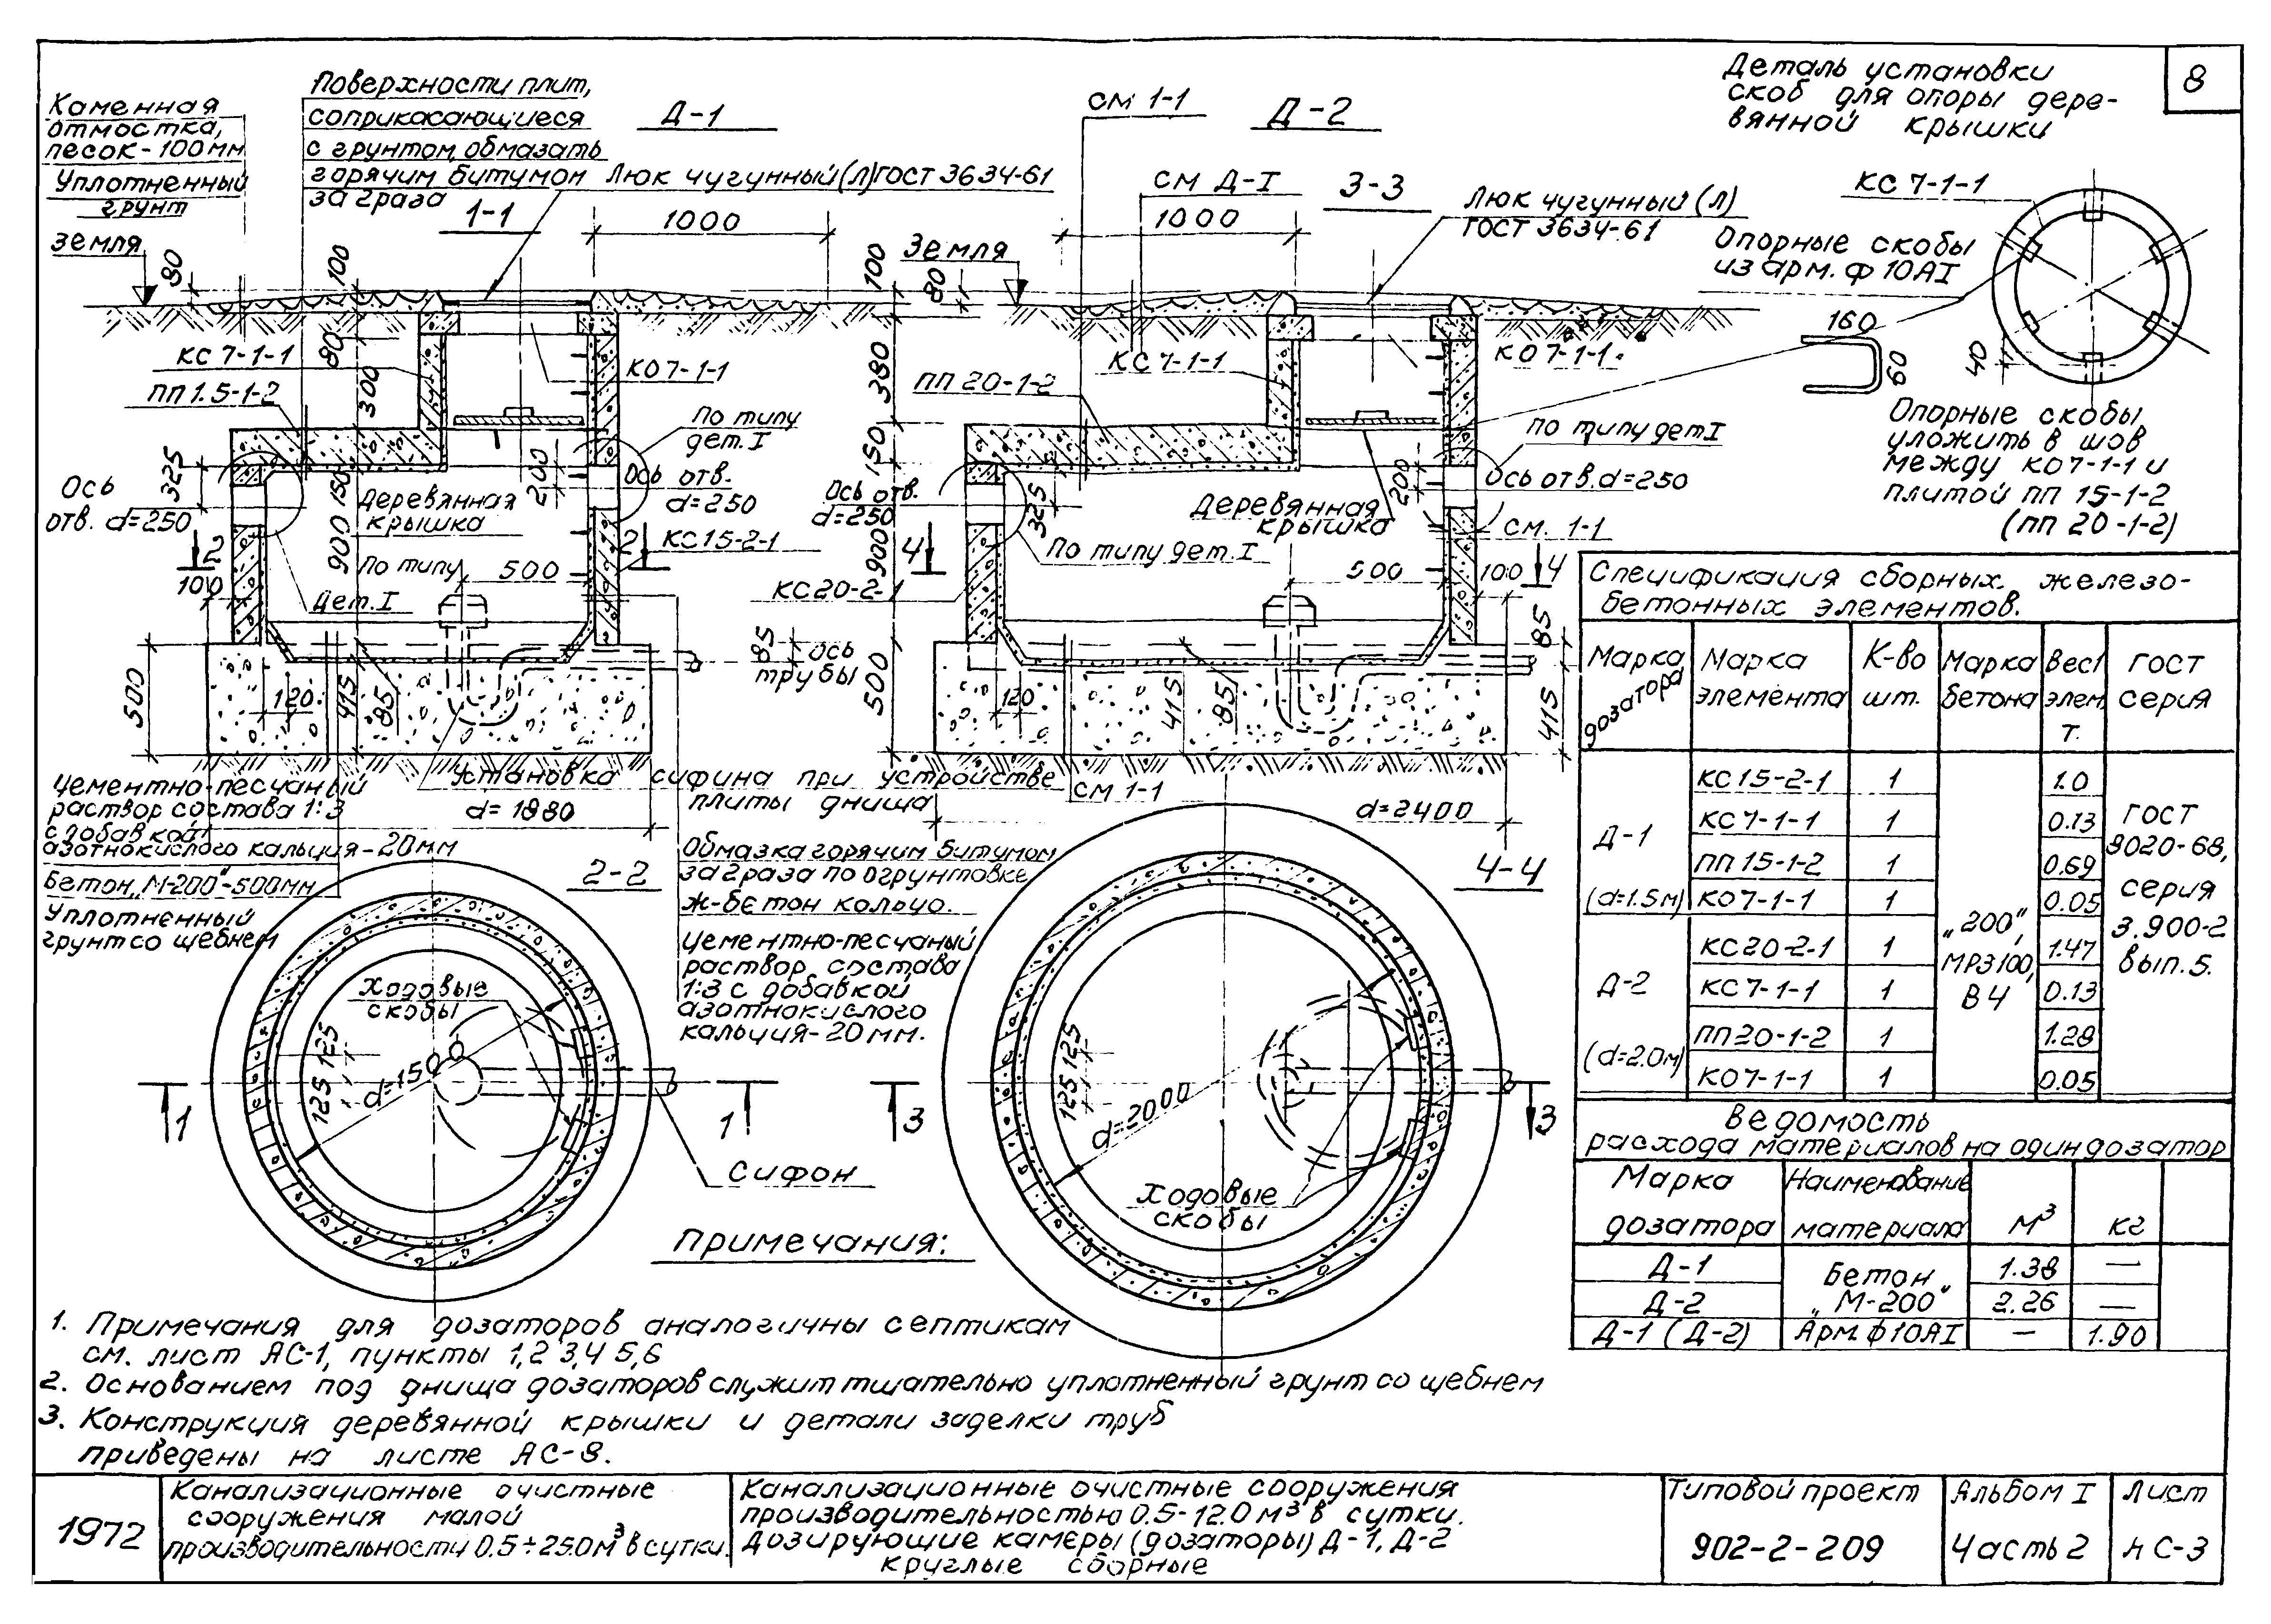 8
Каменная
отмостка,
песок-100мм
Уплотненный
грунт
Земля
Поверхности плит,
соприкасающиеся
с грунтом, обмазать
горячим битумом
за 2 раза
Д-1
1-1
Люк чугунный (л) ГОСТ 3634-61
1000
80
100
КС 7-1-1
80
ПП 1.5-1-2
300
КО 7-1-1
По типу
дет. I
325
150
200
Ось
отв. d=250
Деревянная
крышка
Ось отв.
d=250
2
2
КС 15-2-1
900
100
По типу
500
Дет. I
500
120
415
85
85
Ось
трубы
Установка сифина при устройстве
плиты днища
d=1980
Цементно-песчаный
раствор состава 1:3
с добавкой
азотнокислого кальция-20мм
Бетон „М-200"-500мм
Уплотненный
грунт со щебнем
Д-2
3-3
см 1-1
см Д-I
1000
Земля
80
100
Люк чугунный (л)
ГОСТ 3634-61
380
КС 7-1-1
ПП 20-1-2
КО 7-1-1
150
По типу дет I
Ось отв.
d=250
325
200
Ось отв. d=250
Деревянная
крышка
см. 1-1
4
4
900
По типу дет. I
КС 20-2-1
500
100
85
500
120
415
85
415
см 1-1
d=2400
2-2
Обмазка горячим битумом
за 2 раза по огрунтовке
ж-бетон кольцо.
Цементно-песчаный
раствор состава
1:3 с добавкой
азотнокислого
кальция-20мм.
Ходовые
скобы
125
125
d=1500
1
1
Сифон
4-4
125
125
d=2000
3
3
Ходовые
скобы
Деталь установки
скоб для опоры дере-
вянной крышки
КС 7-1-1
Опорные скобы
из арм. ф 10АI
160
60
40
Опорные скобы
уложить в шов
между КО 7-1-1 и
плитой ПП 15-1-2
(ПП 20-1-2)
Спецификация сборных железо-
бетонных элементов.
Марка дозатора Марка элемента К-во шт. Марка бетона Вес 1 элем. т. ГОСТ серия
Д-1
(d=1.5м)
КС 15-2-1 1 1.0
КС 7-1-1 1 0.13
ПП 15-1-2 1 0.69
КО 7-1-1 1 0.05
Д-2
(d=2.0м)
КС 20-2-1 1 1.47
КС 7-1-1 1 0.13
ПП 20-1-2 1 1.28
КО 7-1-1 1 0.05
„200",
МРЗ 100,
В 4
ГОСТ
9020-68,
серия
3.900-2
вып. 5.
Ведомость
расхода материалов на один дозатор
Марка дозатора Наименование материала м³ кг
Д-1 Бетон 1.38 —
Д-2 „М-200" 2.26 —
Д-1 (Д-2) Арм. ф10АI — 1.90
Примечания:
1. Примечания для дозаторов аналогичны септикам
см. лист АС-1, пункты 1,2 3,4 5,6
2. Основанием под днища дозаторов служит тщательно уплотненный грунт со щебнем
3. Конструкция деревянной крышки и детали заделки труб
приведены на листе АС-8.
1972
Канализационные очистные
сооружения малой
производительности 0.5÷25.0м³ в сутки.
Канализационные очистные сооружения
производительностью 0.5-12.0 м³ в сутки.
Дозирующие камеры (дозаторы) Д-1, Д-2
круглые сборные
Типовой проект
902-2-209
Альбом I
Часть 2
Лист
АС-3